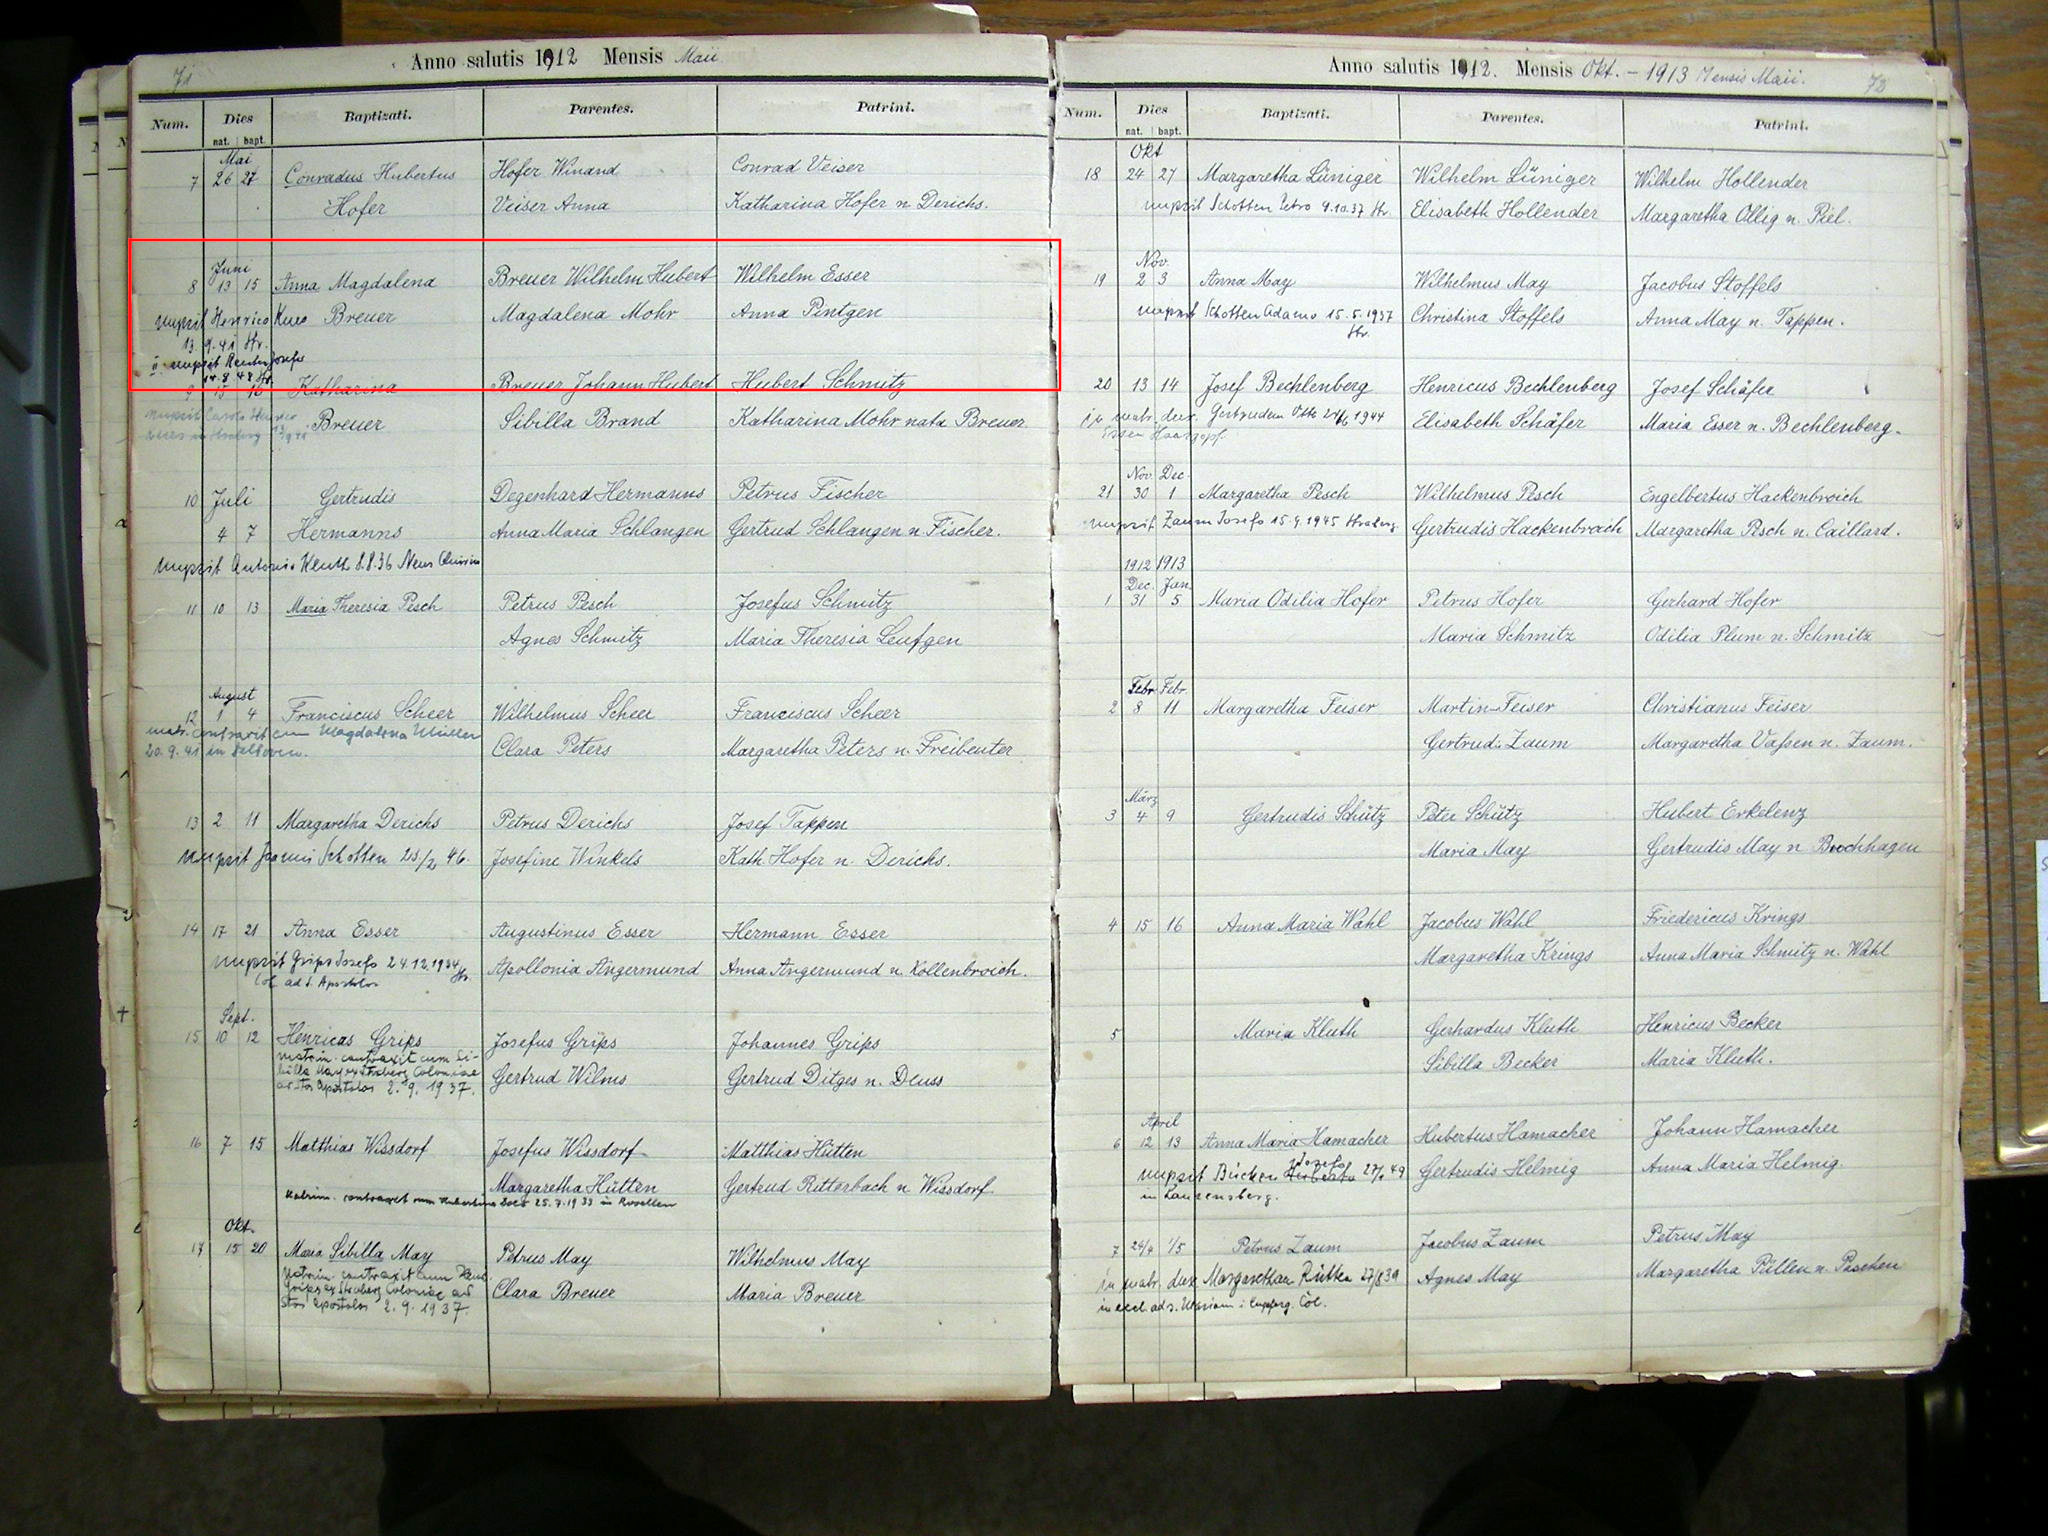 71
Anno salutis 1912 Mensis Maii
Num.
Dies
nat. bapt.
Baptizati.
Parentes.
Patrini.
Mai
7 26 27 Conradus Hubertus Hofer Winand Conrad Veiser
Hofer Veiser Anna Katharina Hofer n. Derichs.
Juni
8 13 15 Anna Magdalena Breuer Wilhelm Hubert Wilhelm Esser
nupsit Henrico Breuer Magdalena Mohr Anna Pintgen
13 9.41 Str.
II. nupsit Josefo
14.8.48 Str.
9 15 16 Katharina Breuer Johann Hubert Hubert Schmitz
nupsit Breuer Sibilla Brand Katharina Mohr nata Breuer.
10 Juli Gertrudis Degenhard Hermanns Petrus Fischer
4 7 Hermanns Anna Maria Schlangen Gertrud Schlangen n. Fischer.
nupsit Antonio Kluth 8.8.36 Neuss Quirin
11 10 13 Maria Theresia Pesch Petrus Pesch Josefus Schmitz
Agnes Schmitz Maria Theresia Leufgen
August
12 1 4 Franciscus Scheer Wilhelmus Scheer Franciscus Scheer
matr. contraxit cum Magdalena Müller Clara Peters Margaretha Peters n. Freibeuter
20.9.41 in
13 2 11 Margaretha Derichs Petrus Derichs Josef Tappen
nupsit Schotten 25/2 46. Josefine Winkels Kath. Hofer n. Derichs.
14 17 21 Anna Esser Augustinus Esser Hermann Esser
nupsit Grips Josefo 24.12.1934 Apollonia Angermund Anna Angermund n. Kollenbroich.
Col. ad s. Apostolos Str.
Sept.
15 10 12 Henricus Grips Josefus Grips Johannes Grips
matrim. contraxit cum Si-
billa May Strberg Coloniae Gertrud Wilms Gertrud Ditges n. Deuss
ad stos Apostolos 2.9.1937.
16 7 15 Matthias Wissdorf Josefus Wissdorf Matthias Hütten
Margaretha Hütten Gertrud Ritterbach n. Wissdorf
Matrim. contraxit cum 25.7.1933 in Rosellen
Okt.
17 15 20 Maria Sibilla May Petrus May Wilhelmus May
Matrim. contraxit cum Henr.
Grips ex Strberg Coloniae ad Clara Breuer Maria Breuer
stos Apostolos 2.9.1937.
Anno salutis 1912. Mensis Okt. - 1913 Mensis Maii.
72
Num.
Dies
nat. bapt.
Baptizati.
Parentes.
Patrini.
Okt
18 24 27 Margaretha Lüniger Wilhelm Lüniger Wilhelm Hollender
nupsit Schotten Petro 9.10.37 Str. Elisabeth Hollender Margaretha Ollig n. Piel.
Nov.
19 2 3 Anna May Wilhelmus May Jacobus Stoffels
nupsit Schotten Adamo 15.5.1937 Christina Stoffels Anna May n. Tappen.
Str.
20 13 14 Josef Bechlenberg Henricus Bechlenberg Josef Schäfer
in matr. dux. Gertrudem Otto 24/6 1944 Elisabeth Schäfer Maria Esser n. Bechlenberg.
Essen Haarzopf.
Nov. Dec.
21 30 1 Margaretha Pesch Wilhelmus Pesch Engelbertus Hackenbroich
nupsit Zaum Josefo 15.9.1945 Strberg. Gertrudis Hackenbroich Margaretha Pesch n. Caillard.
1912 1913
Dec. Jan.
1 31 5 Maria Odilia Hofer Petrus Hofer Gerhard Hofer
Maria Schmitz Odilia Plum n. Schmitz
Febr. Febr.
2 8 11 Margaretha Feiser Martin Feiser Christianus Feiser
Gertrud. Zaum Margaretha Vaßen n. Zaum.
März
3 4 9 Gertrudis Schütz Peter Schütz Hubert Erkelenz
Maria May Gertrudis May n Brochhagen
4 15 16 Anna Maria Wahl Jacobus Wahl Friedericus Krings
Margaretha Krings Anna Maria Schmitz n. Wahl
5 Maria Kluth Gerhardus Kluth Henricus Becker
Sibilla Becker Maria Kluth.
April
6 12 13 Anna Maria Hamacher Hubertus Hamacher Johann Hamacher
Josefo
nupsit Bücken 49 Gertrudis Helmig Anna Maria Helmig.
in Laurensberg.
7 24/4 1/5 Petrus Zaum Jacobus Zaum Petrus May
in matr. dux. Margaretham Rütten 27/8 39 Agnes May Margaretha Püllen n. Paschen
in eccl. ad s. Ursulam Col.